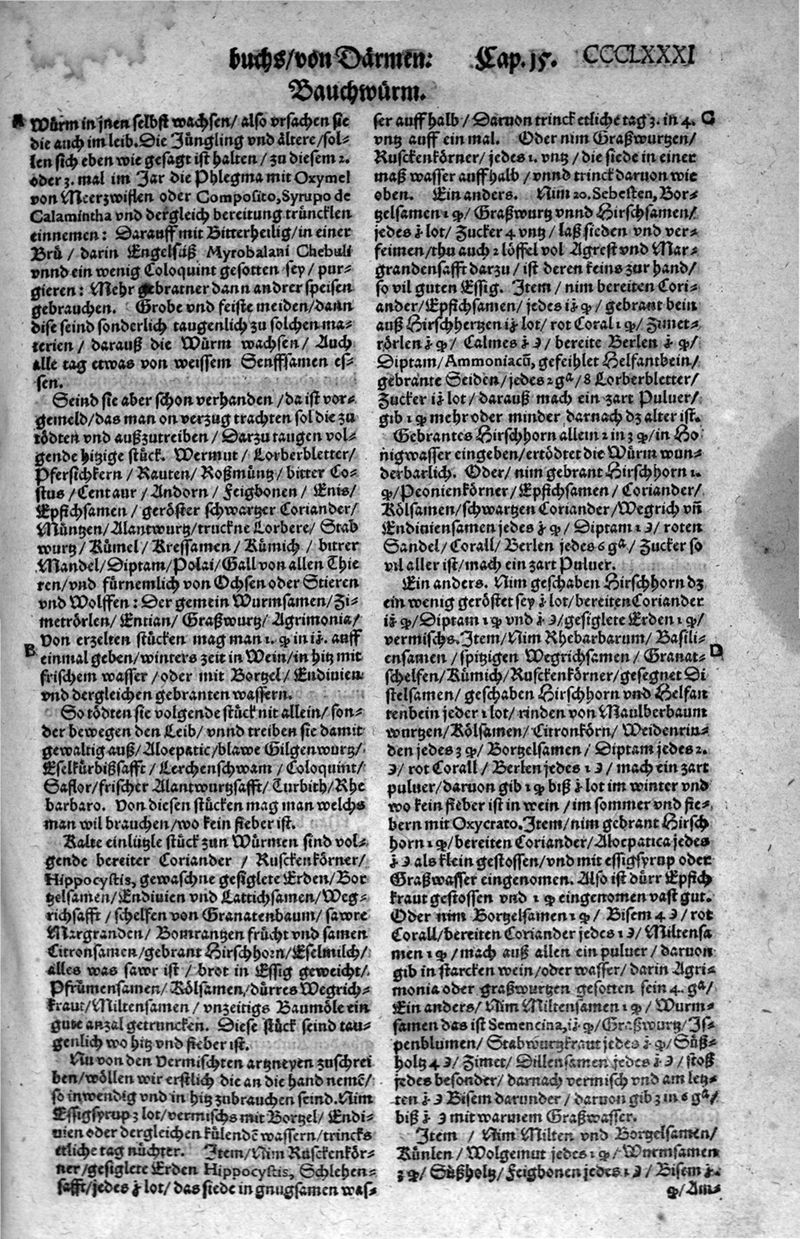 buchs/von Därmen: Cap. 15. CCCLXXXI
Bauchwürm.
A Würm in jnen selbst wachsen/ also vrsachen sie
die auch im leib. Die Jüngling vnd ältere/sol-
len sich eben wie gesagt ist halten/ zu diesem 2.
oder 3. mal im Jar die Phlegma mit Oxymel
von Meerzwiflen oder Composito, Syrupo de
Calamintha vnd dergleich bereitung trüncklen
einnemen: Darauff mit Bitterheilig/in einer
Brü / darin Engelsüß Myrobalani Chebuli
vnnd ein wenig Coloquint gesotten sey / pur-
gieren: Mehr gebratner dann andrer speisen
gebrauchen. Grobe vnd feiste meiden/dann
dise seind sonderlich taugenlich zu solchen ma-
terien / darauß die Würm wachsen/ Auch
alle tag etwas von weissem Senffsamen es-
sen.
Seind sie aber schon verhanden /da ist vor-
gemeld/das man on verzug trachten sol die zu
tödten vnd außzutreiben / Darzu taugen vol-
gende hitzige stück. Wermut / Lorberbletter/
Pfersichkern / Rauten/ Roßmüntz/ bitter Co-
stus /Centaur / Andorn / Feigbonen / Enis/
Epfichsamen / geröster schwartzer Coriander/
Müntzen/Alantwurtz/truckne Lorbere/ Stab
wurtz/ Kümel/ Kressamen/ Kümich / bitrer
Mandel/Diptam/Polai/Gall von allen Thie
ren/vnd fürnemlich von Ochsen oder Stieren
vnd Wolffen: Der gemein Wurmsamen/ Zi-
metrörlen/ Entian/ Graßwurtz/ Agrimonia/
Von erzelten stücken mag man 1. q̃ in iʒ. auff
B einmal geben/winters zeit in Wein/in hitz mit
frischem wasser /oder mit Bortzel/ Endiuien
vnd dergleichen gebranten wassern.
So tödten sie volgende stück nit allein/ son-
der bewegen den Leib/ vnnd treiben sie damit
gewaltig auß/Aloepatic/blawe Gilgenwurtz/
Eselkürbißsafft / Lerchenschwam / Coloquint/
Saflor/frischer Alantwurtzsafft/ Turbith/ Rhe
barbaro. Von diesen stücken mag man welchs
man wil brauchen/wo kein fieber ist.
Kalte einlützle stück zun Würmen sind vol-
gende bereiter Coriander / Rusckenkörner/
Hippocystis, gewaschne gesiglete Erden/Bor
tzelsamen/Endiuien vnd Lattichsamen/Weg-
richsafft / schelfen von Granatenbaum/ sawre
Margranden/ Bomrantzen frücht vnd samen
Citronsamen/gebrant Hirschhorn/Eselmilch/
alles was sawr ist / brot in Essig geweicht/
Pfrümensamen/ Kölsamen/ dürres Wegrich-
kraut/Miltensamen / vnzeitigs Baumöle ein
gute anzal getruncken. Diese stück seind tau-
genlich wo hitz vnd fieber ist.
Nu von den Vermischten artzneyen zuschrei
ben/wöllen wir erstlich die an die hand nemẽ/
so inwendig vnd in hitz zubrauchen seind. Nim
Essigsyrup 3 lot/vermischs mit Bortzel/ Endi-
uien oder dergleichen külendẽ wassern/trincks
etliche tag nüchter. Item/Nim Rusckenkör-
ner/gesiglete Erden Hippocystis, Schlehen-
safft/jedes ʒ lot/ das siede in gnugsamen was-
ser auff halb / Daruon trinck etliche tag 3. in 4. C
vntz auff ein mal. Oder nim Graßwurtzen/
Rusckenkörner/ jedes 1. vntz / die siede in einer
maß wasser auff halb / vnnd trinck daruon wie
oben. Ein anders. Nim 20. Sebesten, Bor-
tzelsamen 1 q̃/ Graßwurtz vnnd Hirschsamen/
jedes ʒ lot/ Zucker 4 vntz / laß sieden vnd ver-
feimen/thu auch 2 löffel vol Agrest vnd Mar-
grandensafft darzu/ ist deren keins zur hand/
so vil guten Essig. Item / nim bereiten Cori-
ander/Epfichsamen/ jedes iʒ q̃/ gebrant bein
auß Hirschhertzen iʒ lot/ rot Coral 1 q̃/ Zimet-
rörlen ʒ q̃/ Calmes ʒ ℈/ bereite Berlen ʒ q̃/
Diptam/Ammoniacũ, gefeihlet Helfantbein/
gebrante Seiden/jedes 2 gª/ 8 Lorberbletter/
Zucker iʒ lot/ darauß mach ein zart Puluer/
gib 1 q̃ mehr oder minder darnach dz alter ist.
Gebrantes Hirschhorn allein 1 in 3 q̃/in Ho
nigwasser eingeben/ertödtet die Würm wun-
derbarlich. Oder/ nim gebrant Hirschhorn 1.
q̃/Peonienkörner/Epfichsamen/ Coriander/
Kölsamen/schwartzen Coriander/Wegrich vñ
Endiuiensamen jedes ʒ q̃/ Diptam 1 ℈/ roten
Sandel/Corall/Berlen jedes 6 gª/ Zucker so
vil aller ist/mach ein zart Puluer.
Ein anders. Nim geschaben Hirschhorn dz
ein wenig geröstet sey ʒ lot/bereiten Coriander
iʒ q̃/Diptam 1 q̃ vnd ʒ ℈/gesiglete Erden 1 q̃/
vermischs. Item/Nim Rhebarbarum/ Basili-
ensamen /spitzigen Wegrichsamen/ Granat- D
schelfen/Kümich/ Rusckenkörner/gesegnet Di
stelsamen/ geschaben Hirschhorn vnd Helfan
tenbein jeder 1 lot/ rinden von Maulberbaum
wurtzen/Kölsamen/ Citronkörn/ Weidenrin-
den jedes 3 q̃/ Bortzelsamen/ Diptam jedes 2.
℈/ rot Corall/ Berlen jedes 1 ℈ / mach ein zart
puluer/daruon gib 1 q̃ biß ʒ lot im winter vnd
wo kein fieber ist in wein / im sommer vnd fie-
bern mit Oxycrato. Item/nim gebrant Hirsch
horn 1 q̃/bereiten Coriander/ Aloepatica jedes
ʒ ℈ als klein gestossen/vnd mit essigsyrup oder
Graßwasser eingenomen. Also ist dürr Epfich
kraut gestossen vnd 1 q̃ eingenomen vast gut.
Oder nim Bortzelsamen 1 q̃/ Bisem 4 ℈/ rot
Corall/bereiten Coriander jedes 1 ℈/ Miltensa
men 1 q̃ / mach auß allen ein puluer / daruon
gib in starcken wein/oder wasser/ darin Agri-
monia oder graßwurtzen gesotten sein 4. gª/
Ein anders/ Nim Miltensamen 1 q̃/ Wurm-
samen das ist Semencina, iʒ q̃/ Graßwurtz/ Js-
penblumen/ Stabwurtzkraut jedes ʒ q̃/ Süß-
holtz 4 ℈/ Zimet/ Dillensamen jedes ʒ ℈/ stoß
jedes besonder/ darnach vermisch vnd am letz-
ten ʒ ℈ Bisem darunder/ daruon gib 3 in 6 gª/
biß ʒ ℈ mit warmem Graßwasser.
Item / Nim Milten vnd Bortzelsamen/
Künlen/ Wolgemut jedes 1 q̃/ Wurmsamen
3 q̃/ Süßholtz/ Feigbonen jedes 1 ℈ / Bisem ʒ.
q̃/ Am-